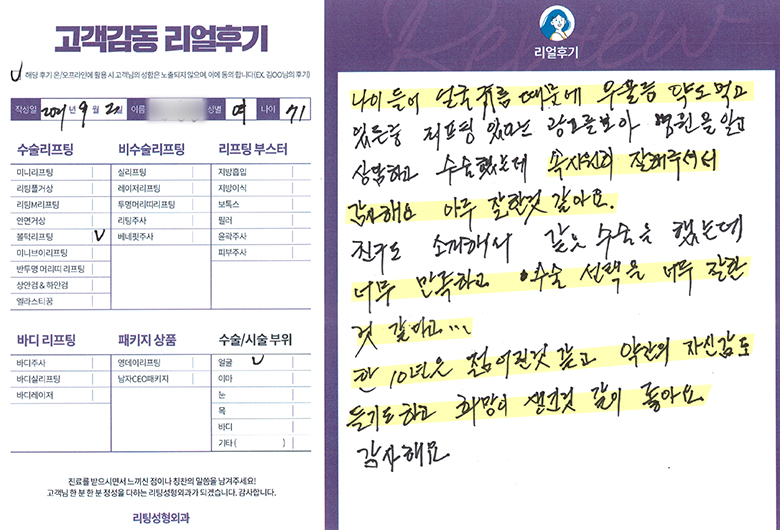 고객감동 리얼후기
해당 후기 온/오프라인에 활용 시 고객님의 성함은 노출되지 않으며, 이에 동의 합니다 (EX. 김OO님의 후기)
작성일 2021년 9월 2일 이름 성별 여 나이 71
수술리프팅 비수술리프팅 리프팅 부스터
미니리프팅 실리프팅 지방흡입
리팅풀거상 레이저리프팅 지방이식
리팅M리프팅 투명머리띠리프팅 보톡스
안면거상 리팅주사 필러
블턱리프팅 V 베네핏주사 윤곽주사
미니브이리프팅 피부주사
반투명 머리띠 리프팅
상안검 & 하안검
엘라스티꿈
바디 리프팅 패키지 상품 수술/시술 부위
바디주사 영데이리프팅 얼굴 V
바디실리프팅 남자CEO패키지 이마
바디레이저 눈
목
바디
기타 ( )
진료를 받으시면서 느끼신 점이나 칭찬의 말씀을 남겨주세요!
고객님 한 분 한 분 정성을 다하는 리팅성형외과가 되겠습니다. 감사합니다.
리팅성형외과
Review
리얼후기
나이 들어 얼굴 주름 때문에 우울증 약도 먹고
있는중 리프팅 있다는 광고를보아 병원을 알고
상담하고 수술했는데 속시원히 잘해주셔서
감사해요 아주 잘한것 같아요.
친구도 소개해서 같은 수술을 했는데
너무 만족하고 수술 선택을 너무 잘한
것 같다고...
한 10년은 젊어진것 같고 약간의 자신감도
들기도하고 희망이 생긴것 같이 좋아요
감사해요